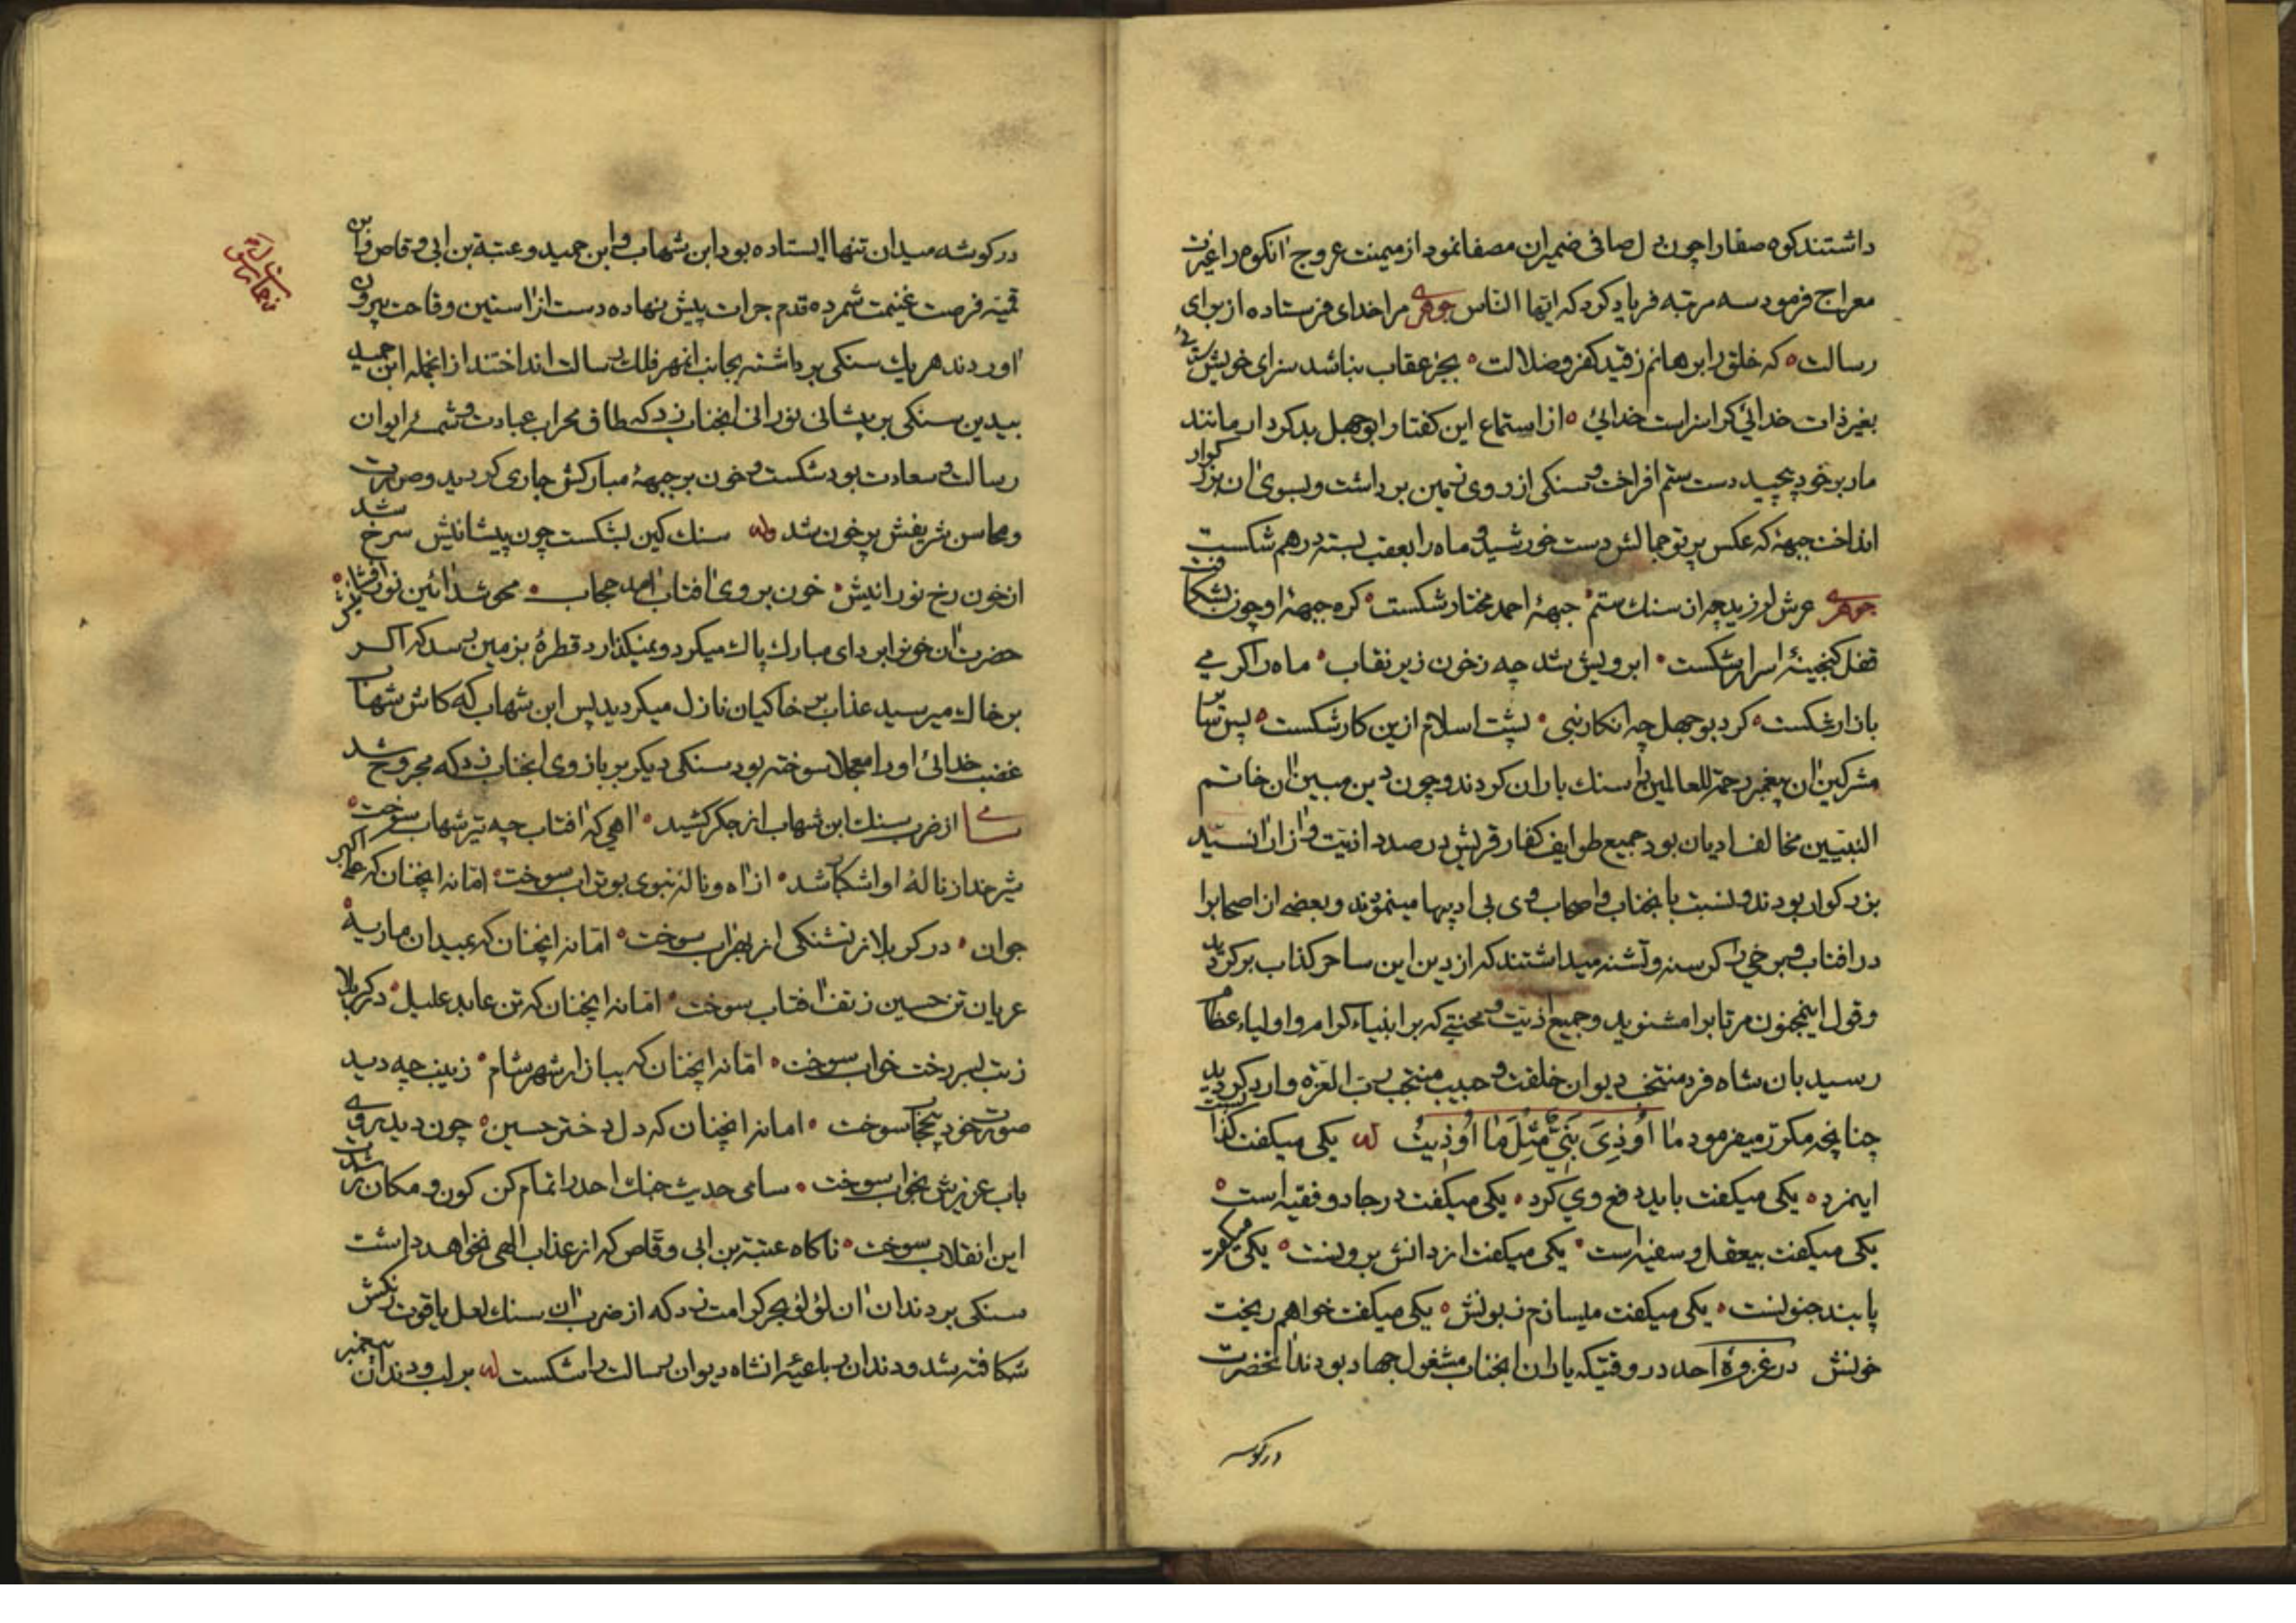 داشتند کوه صفا را چون دل صافی ضمیران مصفا نمود از میمنت عروج انکوه را غیرت
معراج فرمود سه مرتبه فریاد کرد که ایها الناس جوهری مرا خدای فرستاده از برای
رسالت که خلق را برهانم ز قید کفر و ضلالت بجز عقاب نباشد سزای خویش پرستی
بغیر ذات خدائی کرا سزاست خدائی از استماع این کفتار ابوجهل بدکردار مانند
مار بر خود پیچید دست ستم افراخت و سنکی از روی زمین برداشت و بسوی ان بزرکوار
انداخت جبههٔ که عکس پرتو جمالش دست خورشید و ماه را بعقب بسته درهم شکست
جوهری عرش لرزید چه از سنک ستم جبههٔ احمد مختار شکست کره جبههٔ او چون بشکافت
قفل کنجینهٔ اسرار شکست ابرویش شد چه ز خون زیر نقاب ماه را کرمی
بازار شکست کرد بوجهل چه انکار نبی پشت اسلام ازین کار شکست پس سایر
مشرکین ان پیغمبر رحمة للعالمین را سنک باران کردند و چون دین مبین ان خاتم
النبیین مخالف ادیان بود جمیع طوایف کفار قریش در صدد اذیت و ازار انسید
بزرکوار بودند و نسبت بانجناب و اصحاب وی بی ادبیها مینمودند و بعضی از اصحاب را
در افتاب و برخی را کرسنه و تشنه میداشتند که از دین این ساحر کذاب برکردید
و قول اینمجنون مرتاب را مشنوید و جمیع اذیت و محنتی که بر انبیاء کرام و اولیاء عظام
رسید بان شاه فرد منتخب دیوان خلقت و حبیب منتجب رب العزه وارد کردید
چنانچه مکرر میفرمود مَا اُوذِیَ نَبِیٌّ مِثْلَ مَا اُوذِیتُ له یکی میکفت کذابست
اینمرد یکی میکفت باید دفع وی کرد یکی میکفت در جادو فقیه است
یکی میکفت بیعقل و سفیه است یکی میکفت از دانش برونست یکی میکفت
پابند جنونست یکی میکفت میسازم زبونش یکی میکفت خواهم ریخت
خونش در غزوهٔ احد در وقتیکه یاران انجناب مشغول جهاد بودند انحضرت
در کوشه
در کوشه میدان تنها ایستاده بود ابن شهاب و ابن حمید و عتبة بن ابی وقاص و ابن
قمیه فرصت غنیمت شمرده قدم جرات پیش نهاده دست از استین وقاحت بیرون
اوردند هر یک سنکی برداشته بجانب انمهر فلک رسالت انداختند از انجمله ابن حمید
بیدین سنکی بر پیشانی نورانی انجناب زد که طاق محراب عبادت و شمسهٔ ایوان
رسالت و سعادت بود شکست و خون بر جبههٔ مبارکش جاری کردید و صورت
و محاسن شریفش پر خون شد وله سنک کین بشکست چون پیشانیش سرخ شد
از خون رخ نورانیش خون بروی افتاب امد حجاب محو شد ائین نور افشانیش
حضرت ان خون را بردای مبارک پاک میکرد و نمیکذارد قطرهٔ بزمین رسد که اکر
بر خاک میرسید عذاب بر خاکیان نازل میکردید پس ابن شهاب که کاش شهاب
غضب خدائی او را معجلا سوخته بود سنکی دیکر بر بازوی انجناب زد که مجروح شد
سامی از ضرب سنک ابن شهاب از جکر کشید اهی که افتاب چه تیر شهاب سوخت
شیر خدا ز نالهٔ او اشکبار شد از اه و نالهٔ نبوی بوتراب سوخت اما نه انچنان که علی اکبر
جوان در کربلا ز تشنکی از بهر اب سوخت اما نه انچنان که بمیدان ماریه
عریان تن حسین ز تف افتاب سوخت اما نه انچنان که تن عابد علیل در کربلا
ز تب بسر رخت خواب سوخت اما نه انچنان که ببازار شهر شام زینب چه دید
صورت خود بیحجاب سوخت اما نه انچنان که دل دختر حسین چون دید روی
باب عزیزش بخواب سوخت سامی حدیث جنک احد را تمام کن کون و مکان ز شدت
این انقلاب سوخت ناکاه عتبة بن ابی وقاص که از عذاب الهی نخواهد داشت
سنکی بر دندان ان لؤلؤ بحر کرامت زد که از ضرب ان سنک لعل یاقوت رنکش
شکافته شد و دندان رباعیهٔ انشاه دیوان رسالت را شکست له بر لب و دندان پیغمبر